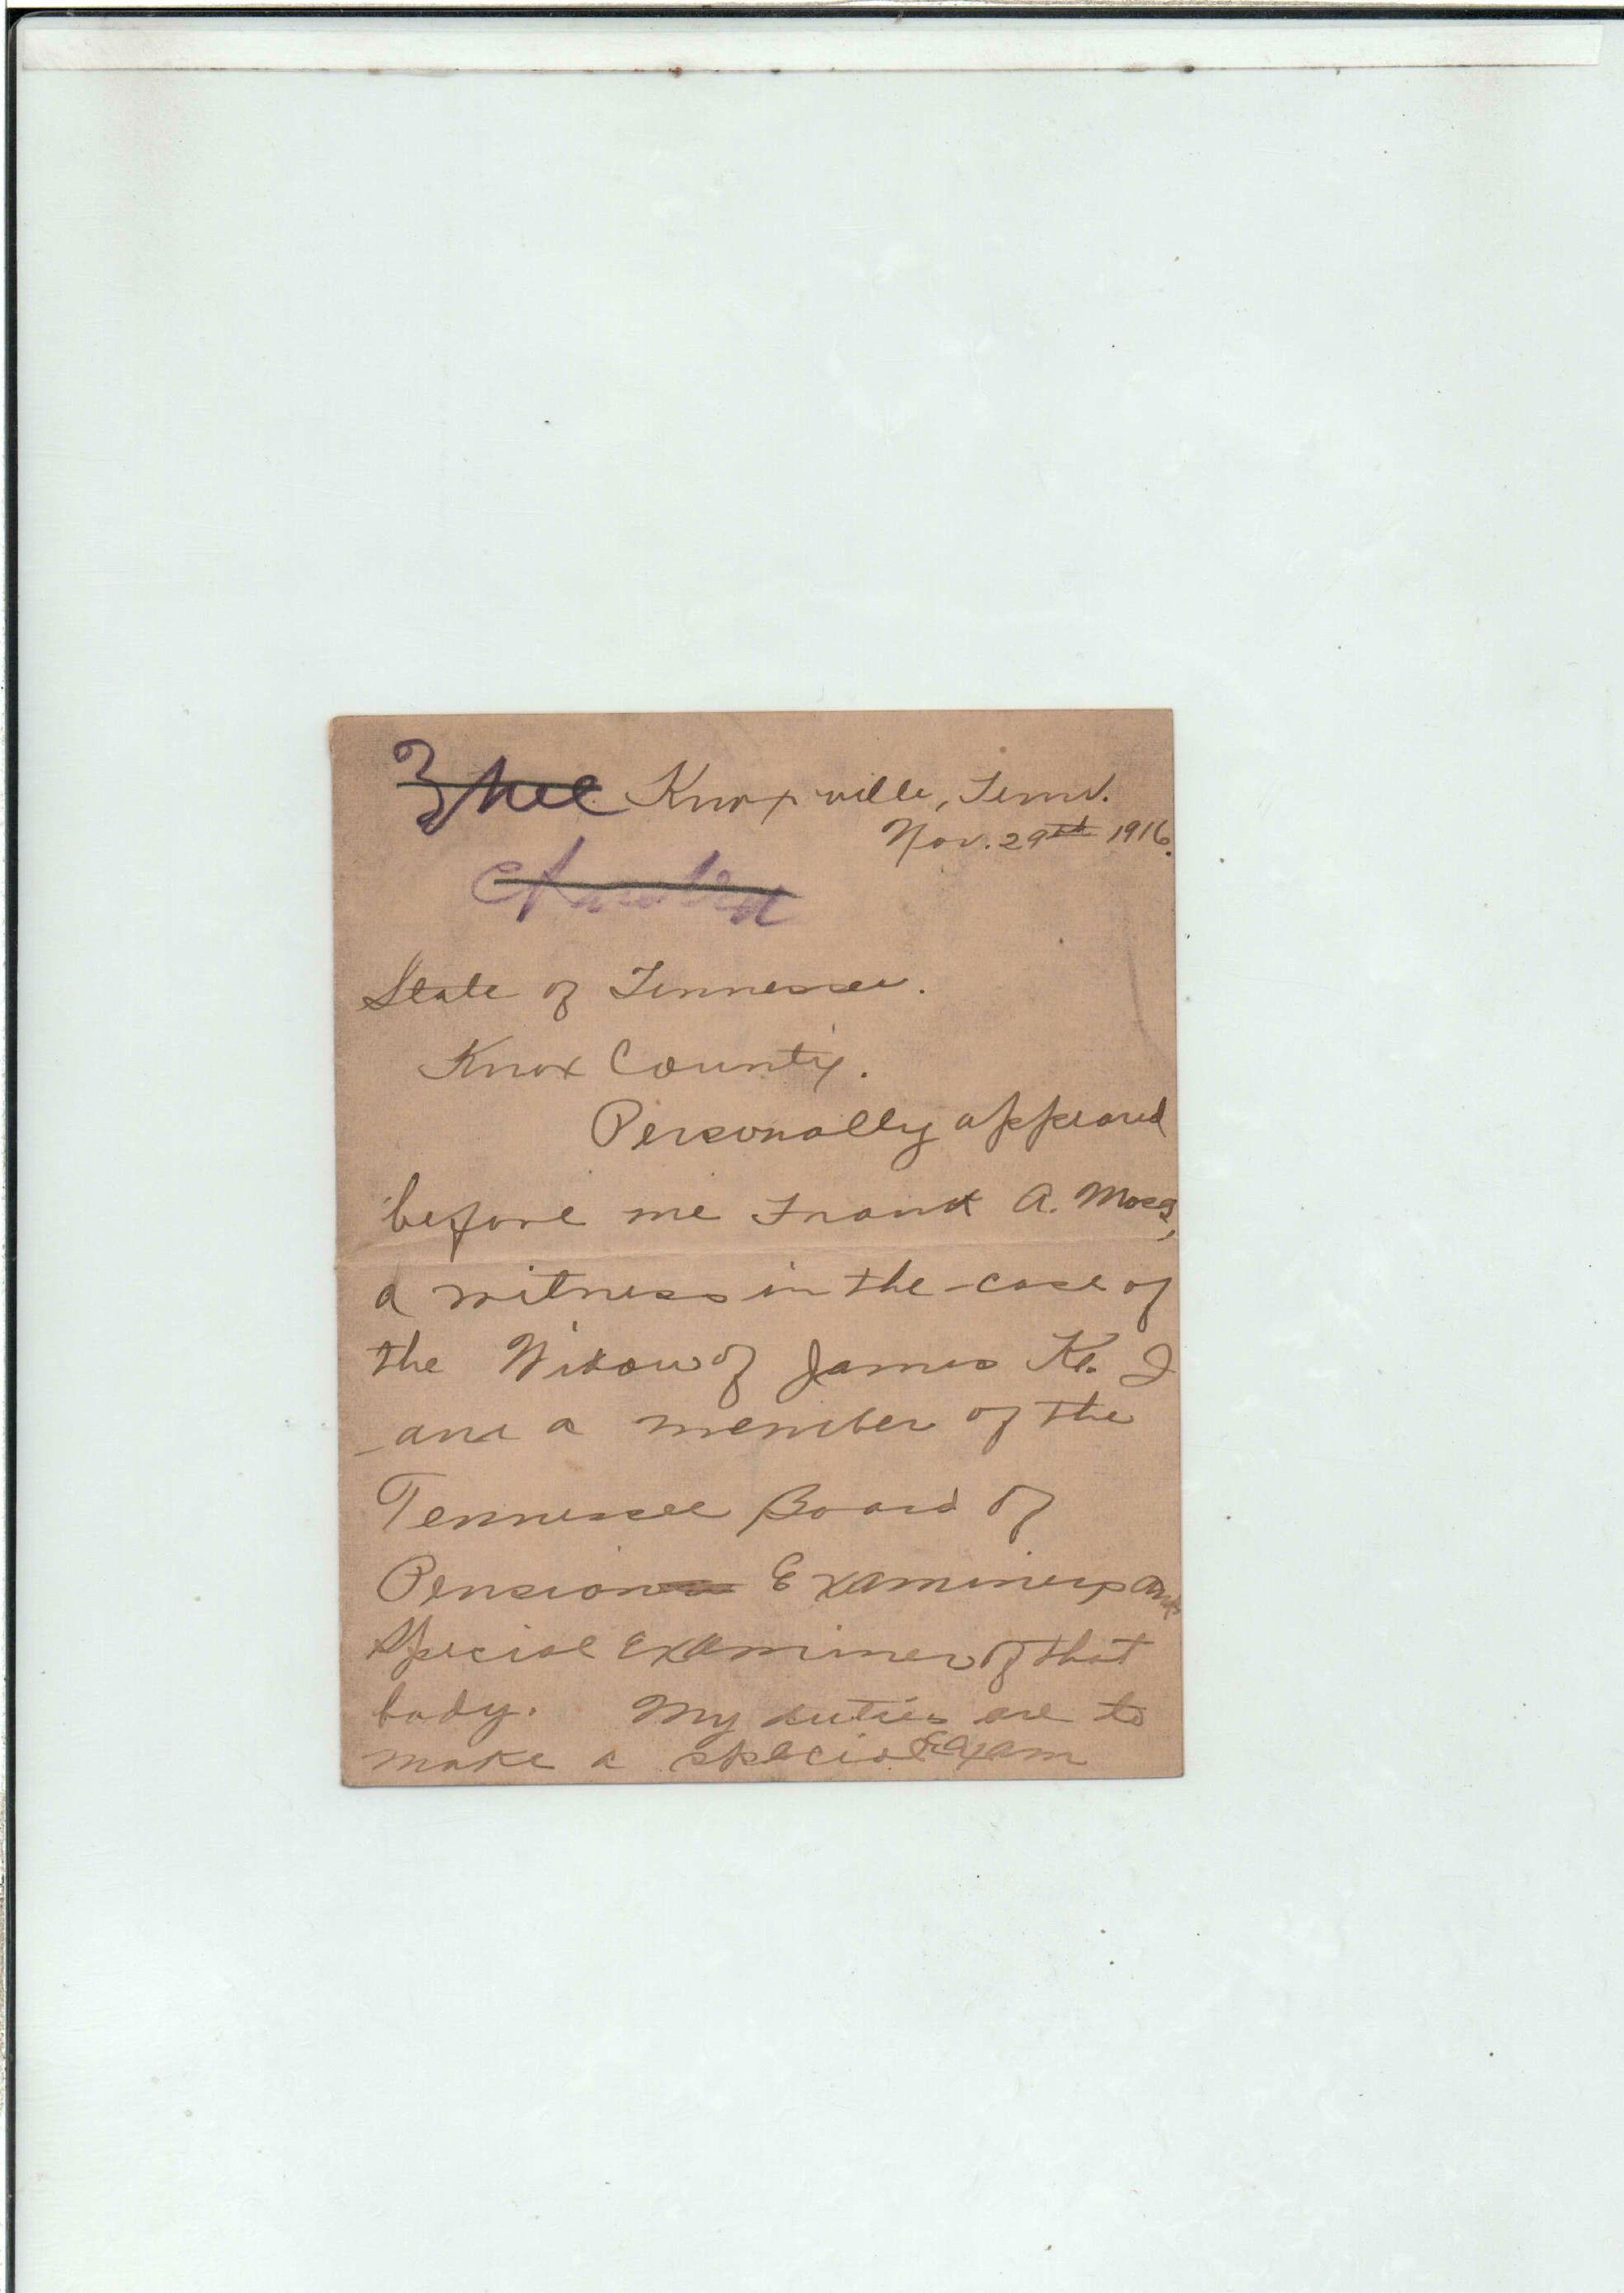 Knoxville, Tenn.
Nov. 29th 1916.
State of Tennessee.
Knox County.
Personally appeared
before me Frank A. Moses,
a witness in the case of
the Widow of James K. I
am a member of the
Tennessee Board of
Pension Examiners and
Special Examiner of that
body. My duties are to
make a special Exam